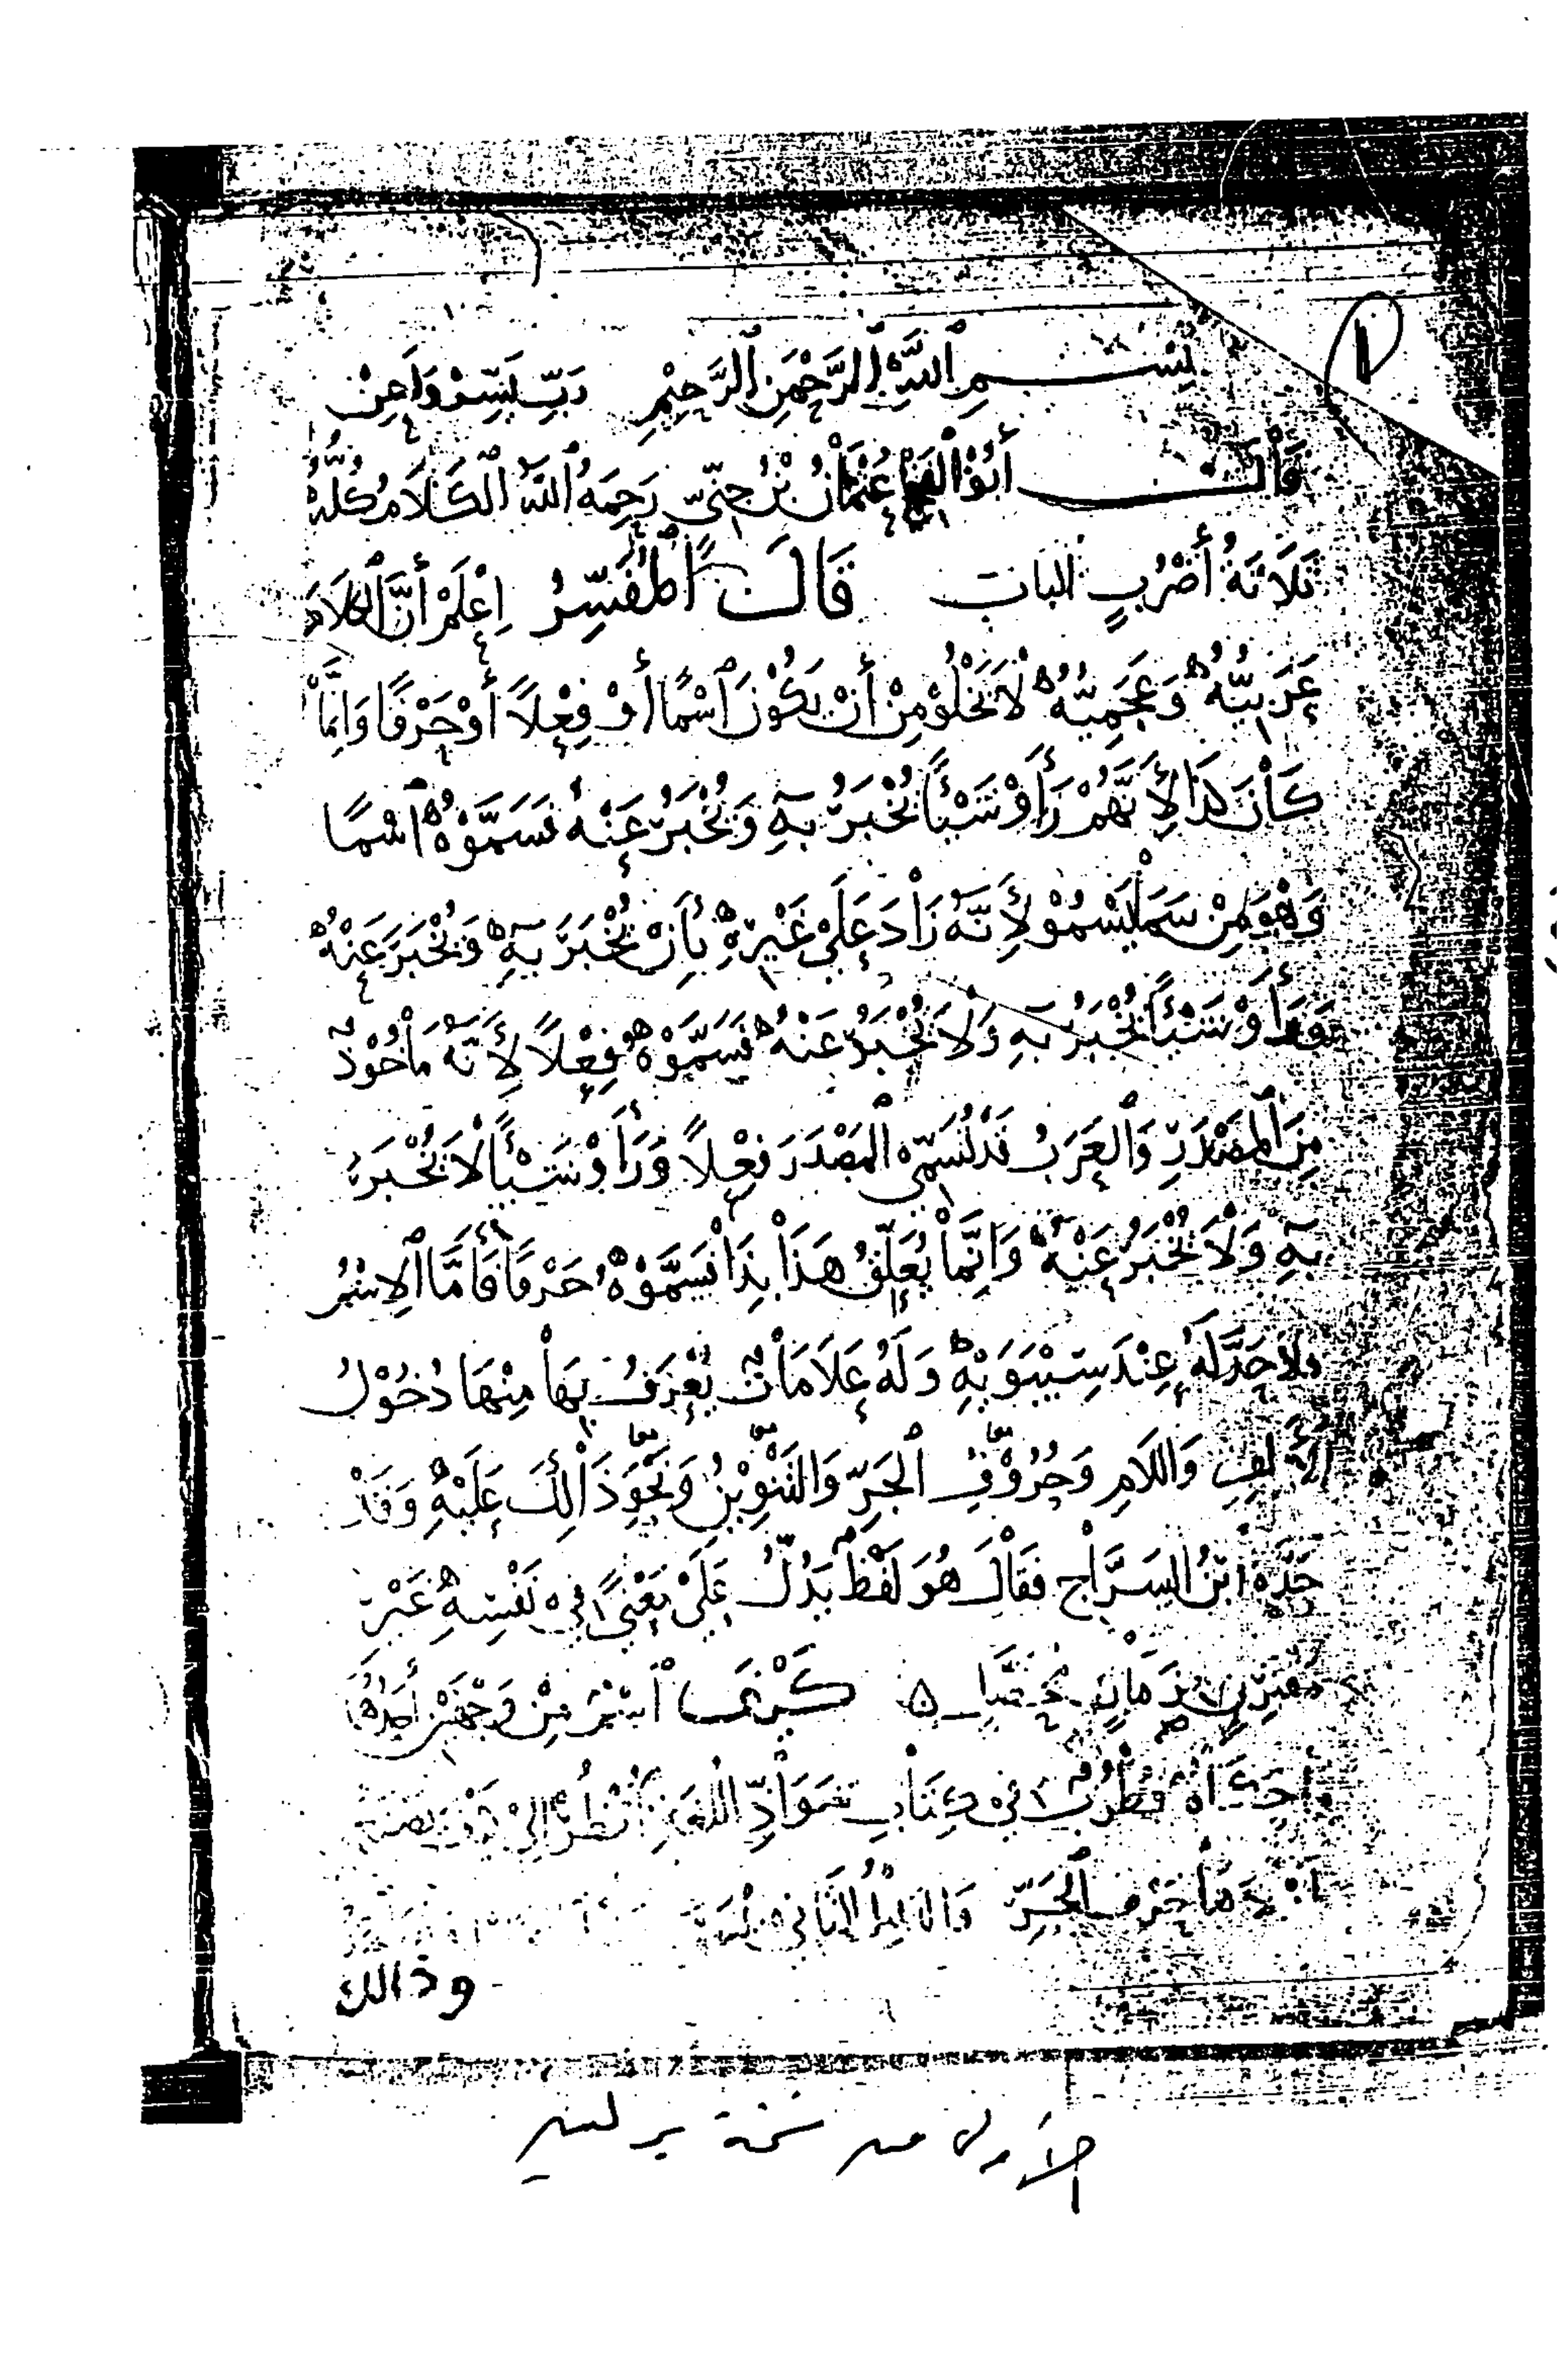 ١
بِسْمِ ٱللَّهِ ٱلرَّحْمَنِ ٱلرَّحِيْمِ رَبِّ يَسِّرْ وَأَعِنْ
قَاْلَ أَبُوْ ٱلْفَتْحِ عُثْمَاْنُ بْنُ جِنِّيّ رَحِمَهُ ٱللَّهُ ٱلْكَلَاَمُ كُلُّهُ
ثَلَاَثَةُ أَضْرُبٍ البابَ قَالَ ٱلْمُفَسِّرُ اِعْلَمْ أَنَّ ٱلْكَلَاَمَ
عَرَبِيَّهُ وَعَجَمِيَّهُ لَاْ يَخْلُوْ مِنْ أَنْ يَكُوْنَ ٱسْمًا أَوْ فِعْلاً أَوْ حَرْفًا وَاِنَّمَاْ
كَاْنَ كَذَا لِأَنَّهُمْ رَأَوْ شَيْئًا يُخْبَرُ بِهِ وَيُخْبَرُ عَنْهُ فَسَمَّوْهُ ٱسْمًا
وَهْوَ مِنْ سَمَاْ يَسْمُوْ لِأَنَّهُ زَاْدَ عَلَىْ غَيْرِهِ بِأَنْ يُخْبَرَ بِهِ وَيُخْبَرَ عَنْهُ
وَرَأَوْ شَيْئًا يُخْبَرُ بِهِ وَلَاْ يُخْبَرُ عَنْهُ فَسَمَّوْهُ فِعْلاً لِأَنَّهُ مَأْخُوْذٌ
مِنَ ٱلْمَصْدَرِ وَٱلْعَرَبُ قَدْ تُسَمِّي ٱلْمَصْدَرَ فِعْلاً وَرَأَوْ شَيْئًا لَاْ يُخْبَرُ
بِهِ وَلَاْ يُخْبَرُ عَنْهُ وَاِنَّمَاْ يُعَلِّقُ هَذَاْ بِذَاْ فَسَمَّوْهُ حَرْفًا فَأَمَّا ٱلِاسْمُ
فلاَ حَدَّ لَهُ عِنْدَ سِيْبَوَيْهِ وَلَهُ عَلَاَمَاْتٌ يُعْرَفُ بِهَاْ مِنْهَا دُخُوْلُ
الأَلِفِ وَاللَاَمِ وَحُرُوْفِ ٱلْجَرِّ وَالتَّنْوِيْنُ وَنَحْوَ ذَاْلِكَ عَلَيْهِ وَقَدْ
حَدَّهُ ابْنُ السَّرَّاْجِ فَقَاْلَ هُوَ لَفْظٌ يَدُلُّ عَلَىْ مَعْنًى فِي نَفْسِهِ غَيْرِ
مُقْتَرِنٍ بِزَمَاْنٍ مُحَصَّلٍ ه كَيْفَ ٱسْمٌ مِنْ وَجْهَيْنِ أَحَدُهُمَا
مَا حَكَاْهُ قُطْرُبٌ فِي كِتَاْبِ شَوَاْذِّ اللُغَةِ أُنْظُرْ إِلىْ كَيْفَ يَصْنَعُ
حَرْفَ ٱلْجَرِّ وَالدَلِيْلُ الثَانِي
وذالك
الأول من نسخة برلين